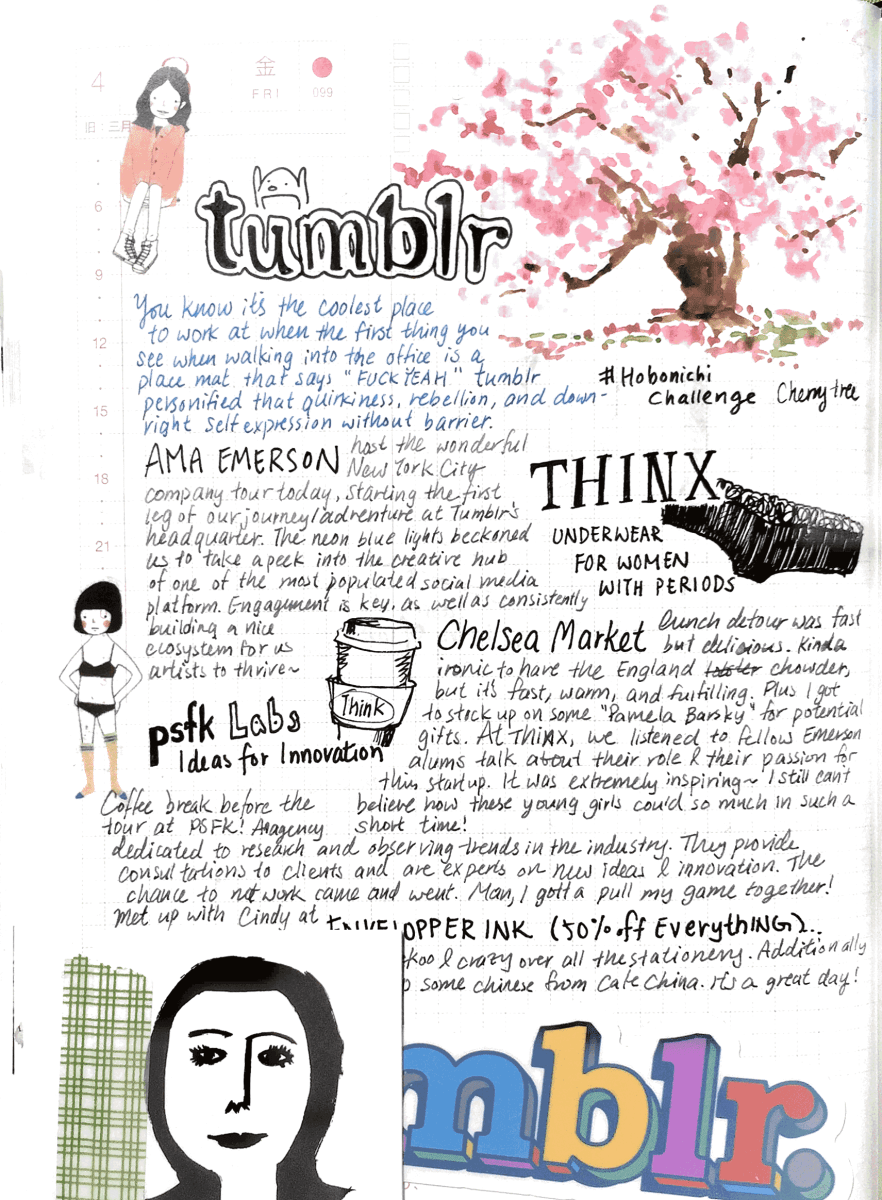 4
金
FRI
099
旧:三月
6
9
12
15
18
21
tumblr
You know it's the coolest place
to work at when the first thing you
see when walking into the office is a
place mat that says "FUCK YEAH" tumblr
personified that quirkiness, rebellion, and down-
right self expression without barrier.
#Hobonichi
Challenge Cherry tree
AMA EMERSON host the wonderful
New York City
company tour today, starting the first
leg of our journey/adventure at Tumblr's
headquarter. The neon blue lights beckoned
us to take a peek into the creative hub
of one of the most populated social media
platform. Engagement is key, as well as consistently
building a nice
ecosystem for us
artists to thrive~
THINX
UNDERWEAR
FOR WOMEN
WITH PERIODS
Think
Chelsea Market Lunch detour was fast
but delicious. Kinda
ironic to have the England lobster chowder,
but it's fast, warm, and fulfilling. Plus I got
to stock up on some "Pamela Barsky" for potential
gifts. At ThiNX, we listened to fellow Emerson
alums talk about their role & their passion for
this startup. It was extremely inspiring~ I still can't
believe how these young girls could so much in such a
short time!
psfk Labs
Ideas for Innovation
Coffee break before the
tour at PSFK! A agency
dedicated to research and observing trends in the industry. They provide
consultations to clients and are experts on new ideas & innovation. The
chance to network came and went. Man, I gotta pull my game together!
Met up with Cindy at
OPPER INK (50% off EverythiNG)..
koo & crazy over all the stationery. Additionally
some chinese from Cafe China. it's a great day!
mblr.